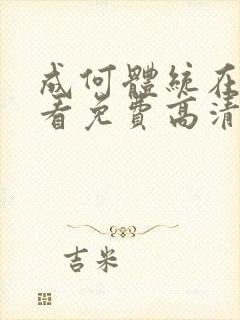 成何體統在
看免費高清
吉米